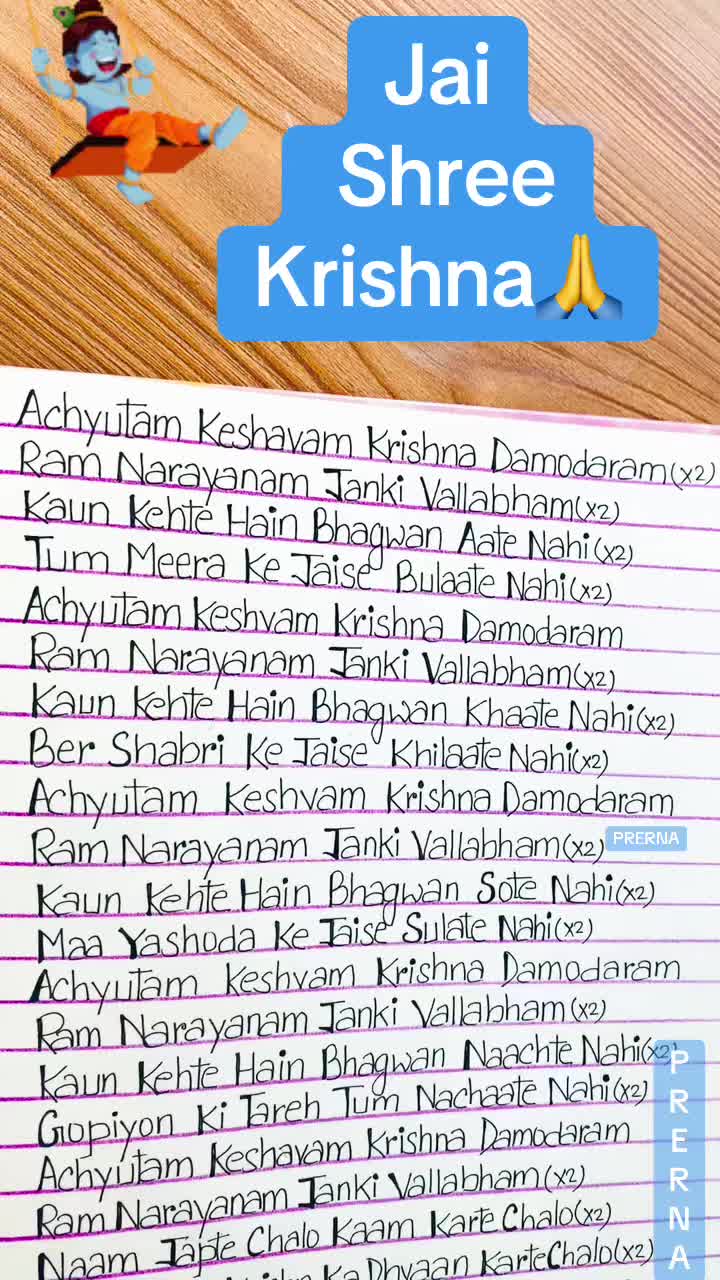 Jai
Shree
Krishna🙏
Achyutam Keshavam Krishna Damodaram(x2)
Ram Narayanam Janki Vallabham(x2)
Kaun Kehte Hain Bhagwan Aate Nahi(x2)
Tum Meera Ke Jaise Bulaate Nahi(x2)
Achyutam Keshvam Krishna Damodaram
Ram Narayanam Janki Vallabham(x2)
Kaun Kehte Hain Bhagwan Khaate Nahi(x2)
Ber Shabri Ke Jaise Khilaate Nahi(x2)
Achyutam Keshvam Krishna Damodaram
Ram Narayanam Janki Vallabham(x2)
PRERNA
Kaun Kehte Hain Bhagwan Sote Nahi(x2)
Maa Yashoda Ke Jaise Sulate Nahi(x2)
Achyutam Keshvam Krishna Damodaram
Ram Narayanam Janki Vallabham(x2)
Kaun Kehte Hain Bhagwan Naachte Nahi(x2)
Gopiyon Ki Tareh Tum Nachaate Nahi(x2)
Achyutam Keshavam Krishna Damodaram
Ram Narayanam Janki Vallabham(x2)
Naam Japte Chalo Kaam Karte Chalo(x2)
Ka Dhyaan Karte Chalo(x2)
PRERNA